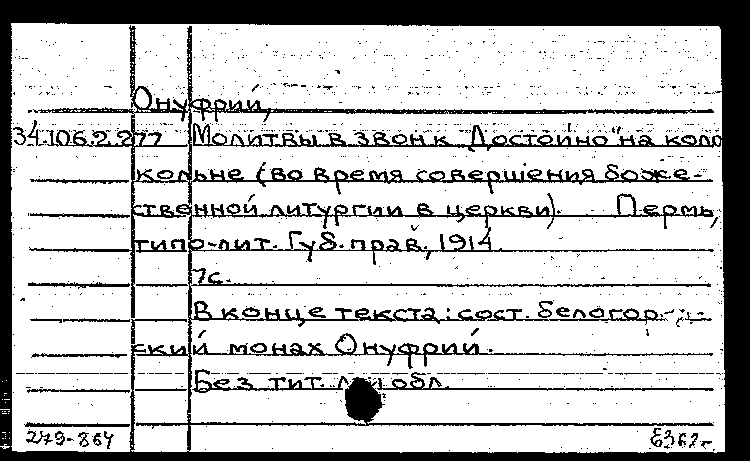 Онуфрий,
34.106.2.277 Молитвы в звон к "Достойно" на коло
кольне (во время совершения боже-
ственной литургии в церкви). Пермь,
типо-лит. Губ. прав., 1914.
7с.
В конце текста: сост. белогор-
ский монах Онуфрий.
Без тит. л. и обл.
279-864